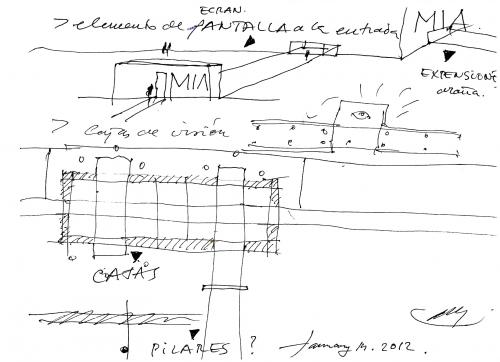 ECRAN.
> elemento de PANTALLA a la entrada
MIA
MIA
EXPENSIONE
> Cajas de visión
CAJAS
PILARES ?
January 14. 2012.